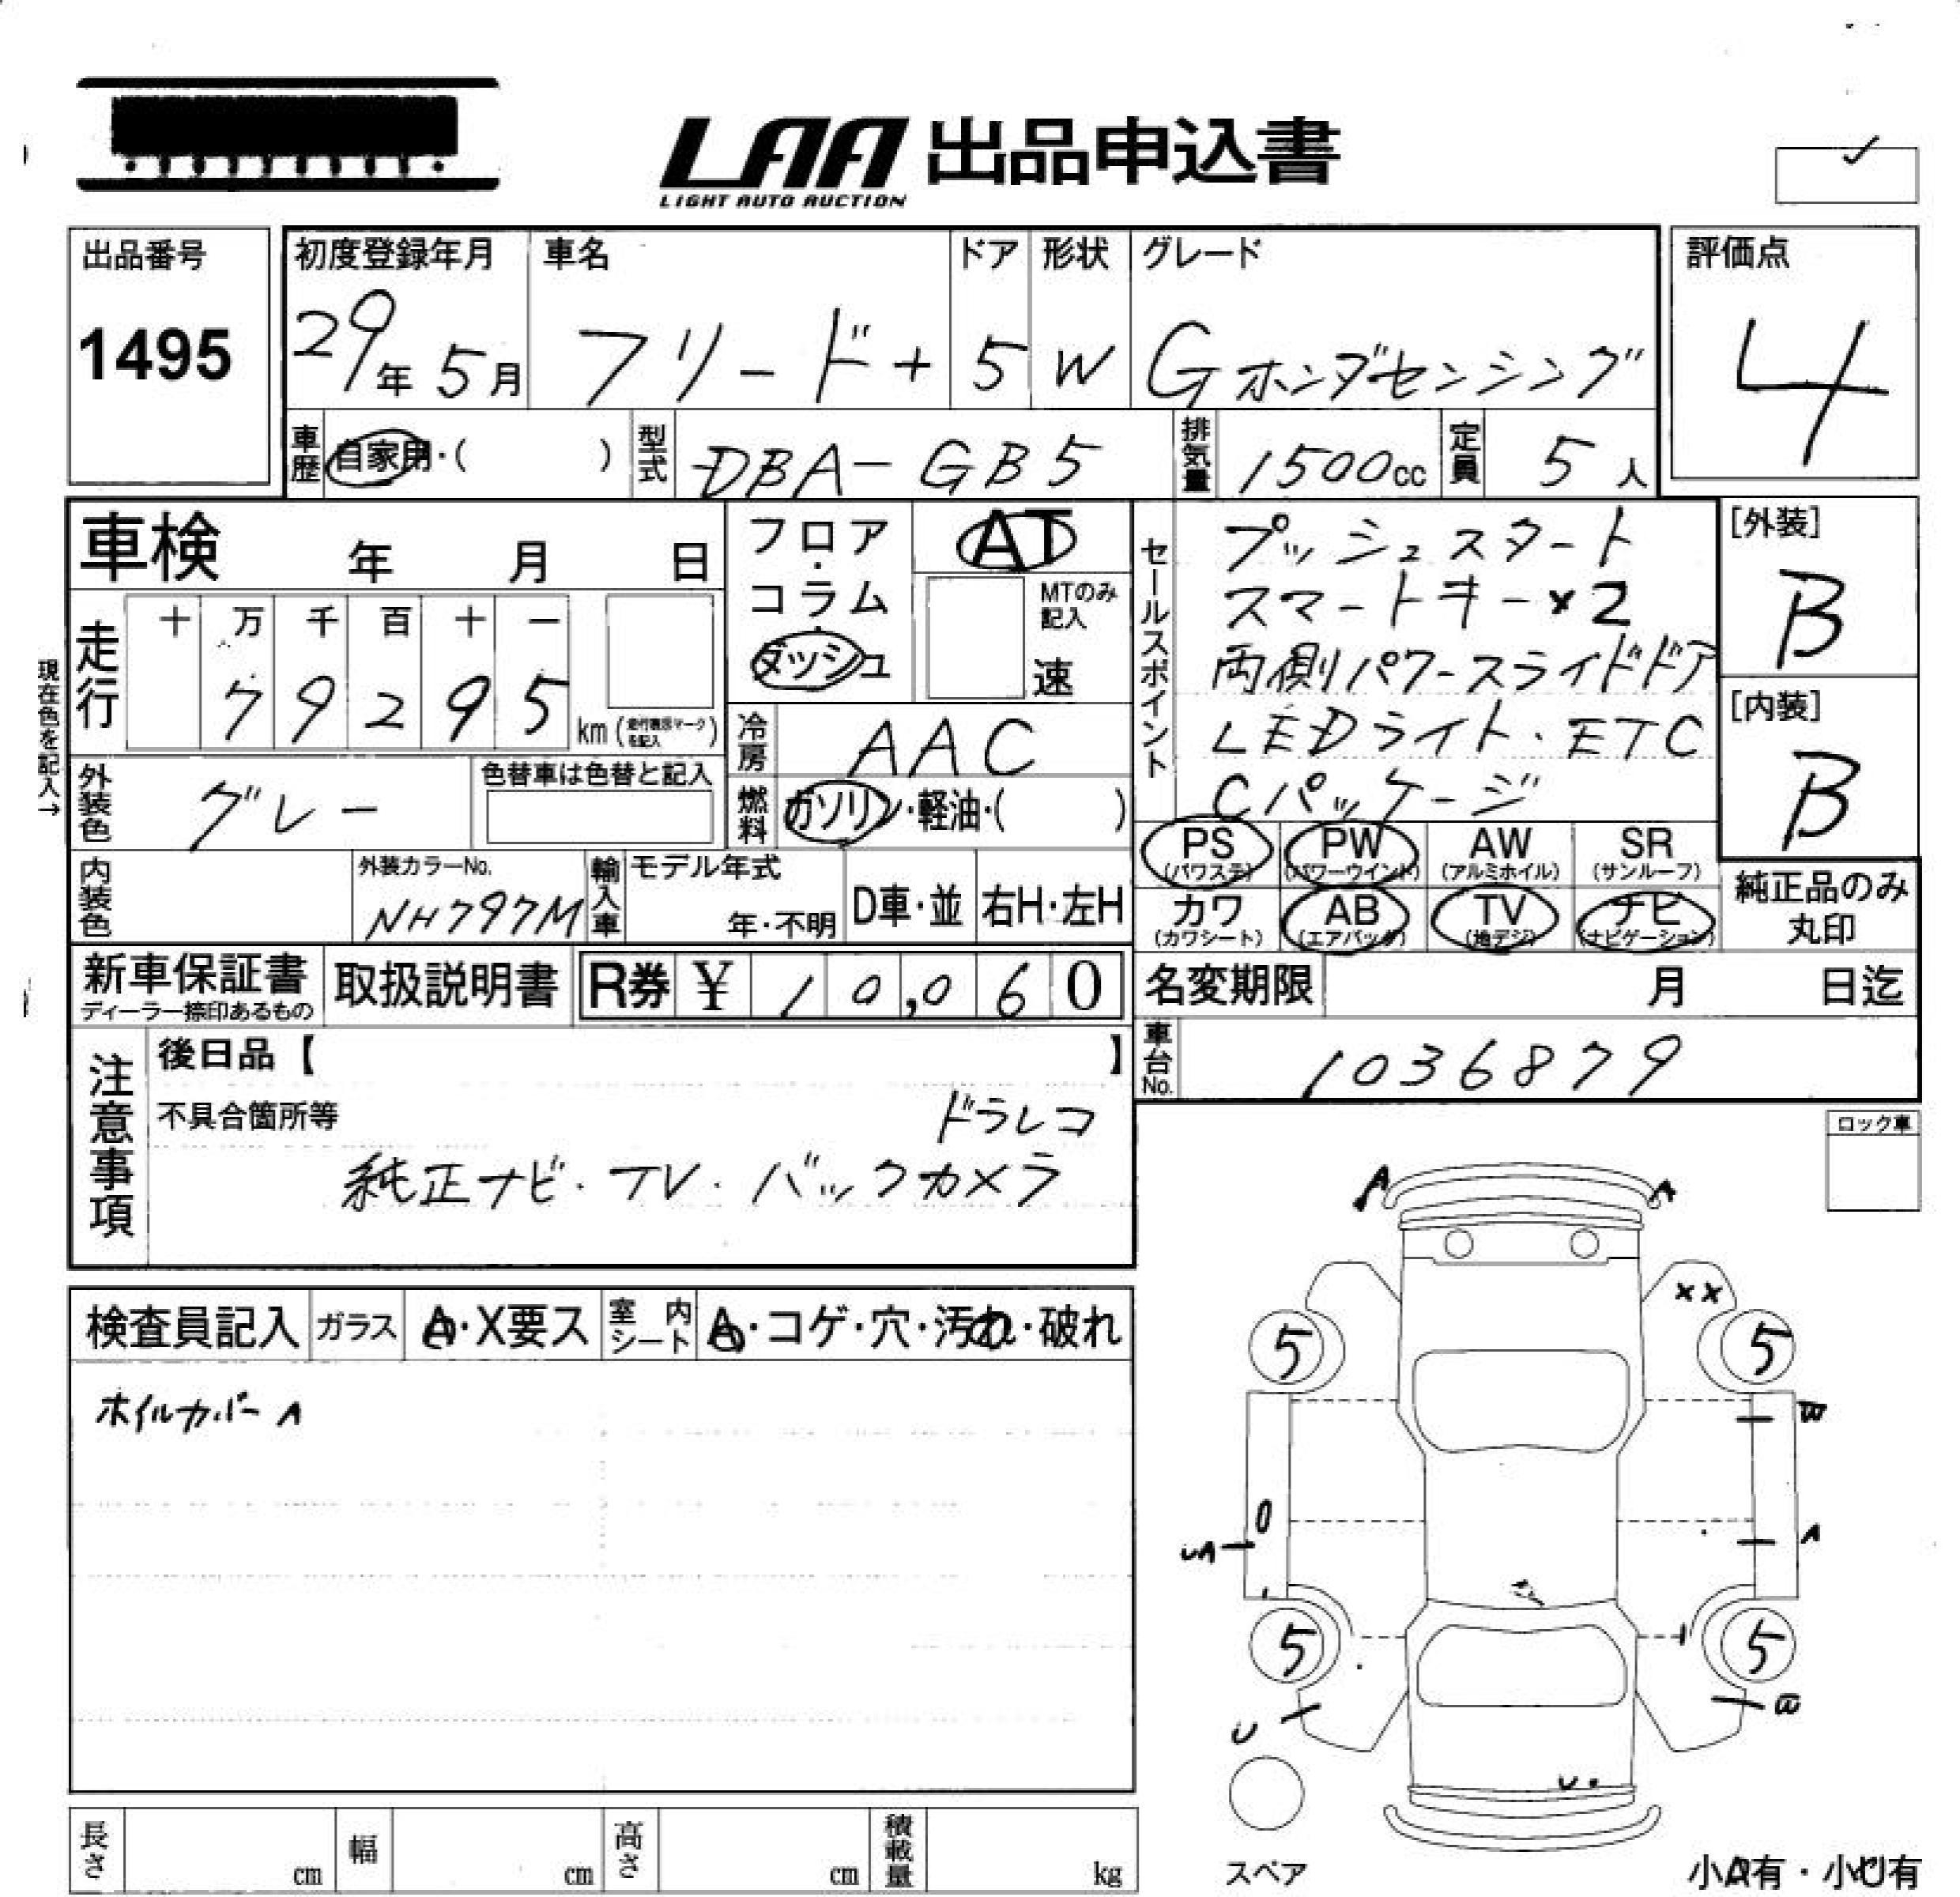 LAA 出品申込書
LIGHT AUTO AUCTION
出品番号
1495
初度登録年月
29年 5月
車名
フリード+
ドア
5
形状
W
グレード
Gホンダセンシング
評価点
4
車歴 自家用・( )
型式 DBA-GB5
排気量 1500cc
定員 5人
車検 年 月 日
フロア・コラム・ダッシュ
AT
MTのみ記入
速
セールスポイント
プッシュスタート
スマートキー×2
両側パワースライドドア
LEDライト・ETC
Cパッケージ
[外装]
B
[内装]
B
現在色を記入→
走行
十 万 千 百 十 一
7 9 2 9 5 km
冷房 AAC
外装色 グレー
色替車は色替と記入
燃料 ガソリン・軽油・( )
PS (パワステ)
PW (パワーウインド)
AW (アルミホイル)
SR (サンルーフ)
カワ (カワシート)
AB (エアバッグ)
TV (地デジ)
ナビ (ナビゲーション)
純正品のみ
丸印
内装色
外装カラーNo.
NH797M
輸入車
モデル年式
年・不明
D車・並
右H・左H
新車保証書
ディーラー捺印あるもの
取扱説明書
R券 ¥ 10,060
名変期限 月 日迄
車台No. 1036879
注意事項
後日品【 】
不具合箇所等
ドラレコ
純正ナビ・TV・バックカメラ
ロック車
検査員記入
ガラス A・X要ス
室内シート A・コゲ・穴・汚れ・破れ
ホイルカバーA
A A
XX
5 5
W
UA A
5 5
U
U
スペア
小A有・小U有
長さ cm
幅 cm
高さ cm
積載量 kg